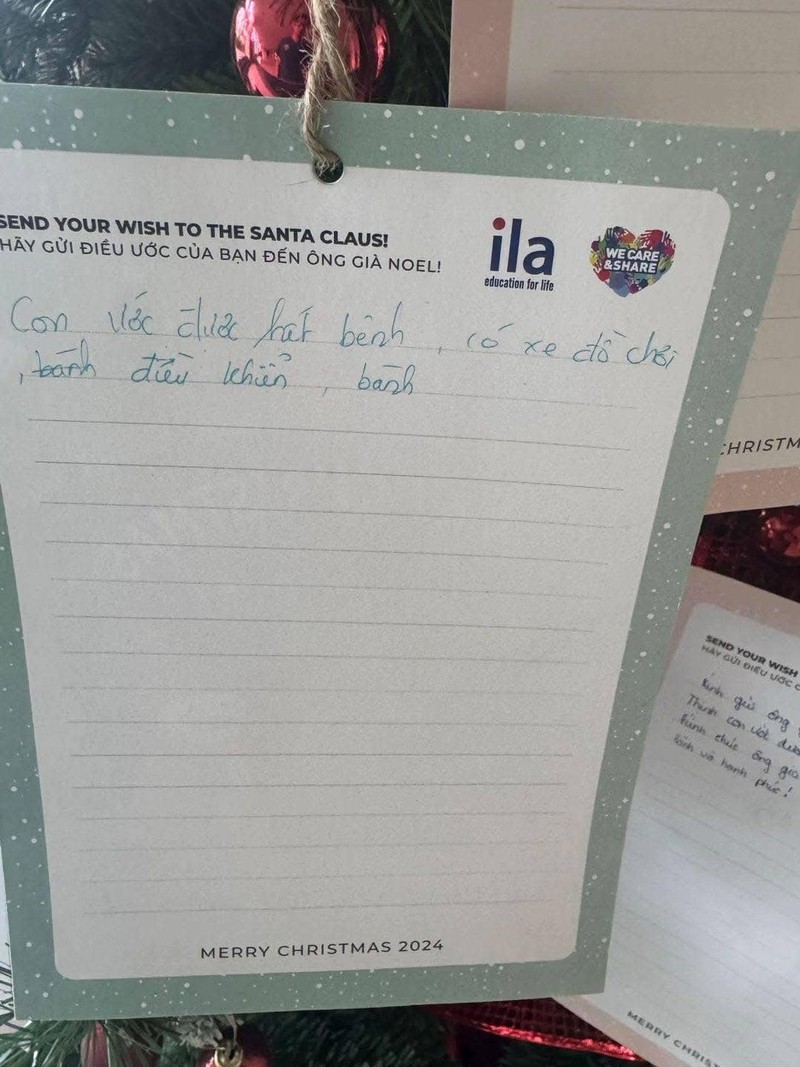 SEND YOUR WISH TO THE SANTA CLAUS!
HÃY GỬI ĐIỀU ƯỚC CỦA BẠN ĐẾN ÔNG GIÀ NOEL!
ila
education for life
WE CARE
&SHARE
Con ước được hết bệnh, có xe đồ chơi
, bánh điều khiển, bánh
MERRY CHRISTMAS 2024
CHRISTM
SEND YOUR WISH
HÃY GỬI ĐIỀU ƯỚC C
Kính gửi ông
con ước đượ
chúc ông già
và hạnh phúc!
MERRY CHRIST